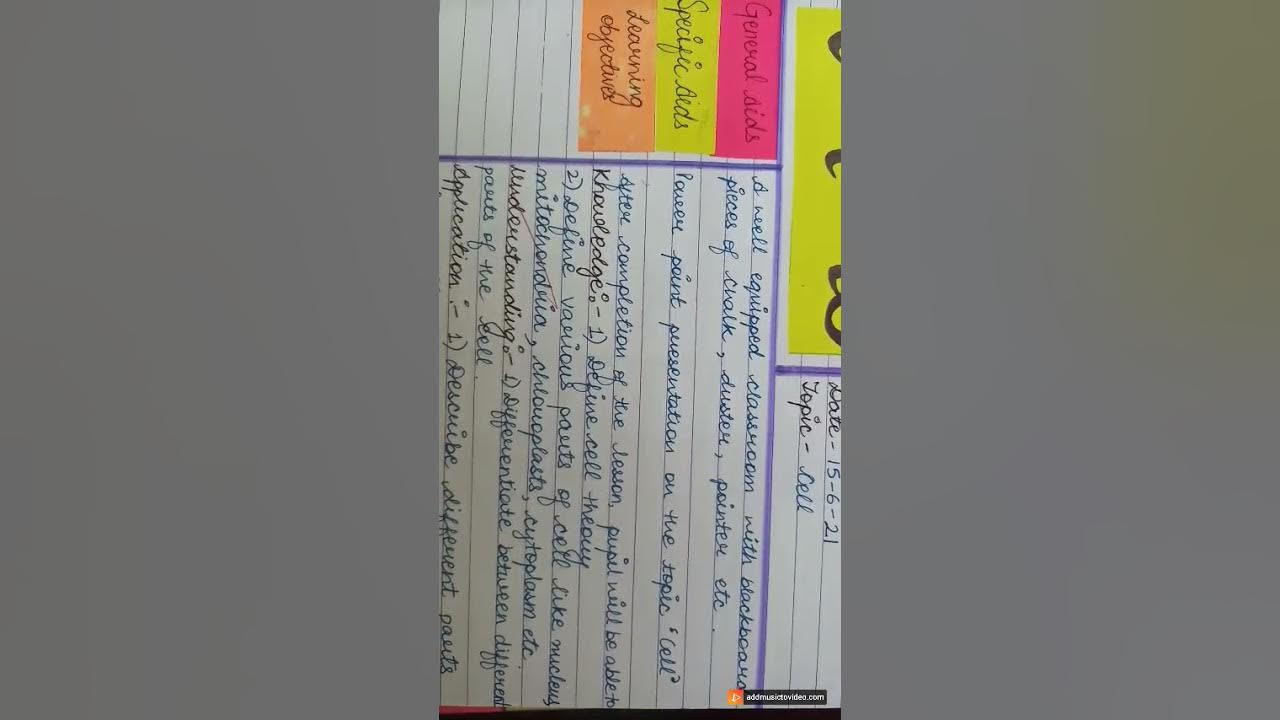 Date - 15-6-21
Topic - Cell
General Aids
A well equipped classroom with blackboard
pieces of chalk, duster, pointer etc.
Specific Aids
Power point presentation on the topic "Cell"
Learning
objectives
After completion of the lesson, pupil will be able to
Knowledge:- 1) Define cell theory
2) Define various parts of cell like nucleus
mitochondria, chloroplasts, cytoplasm etc.
Understanding:- 1) Differentiate between different
parts of the cell.
Application:- 1) Describe different parts
addmusictovideo.com